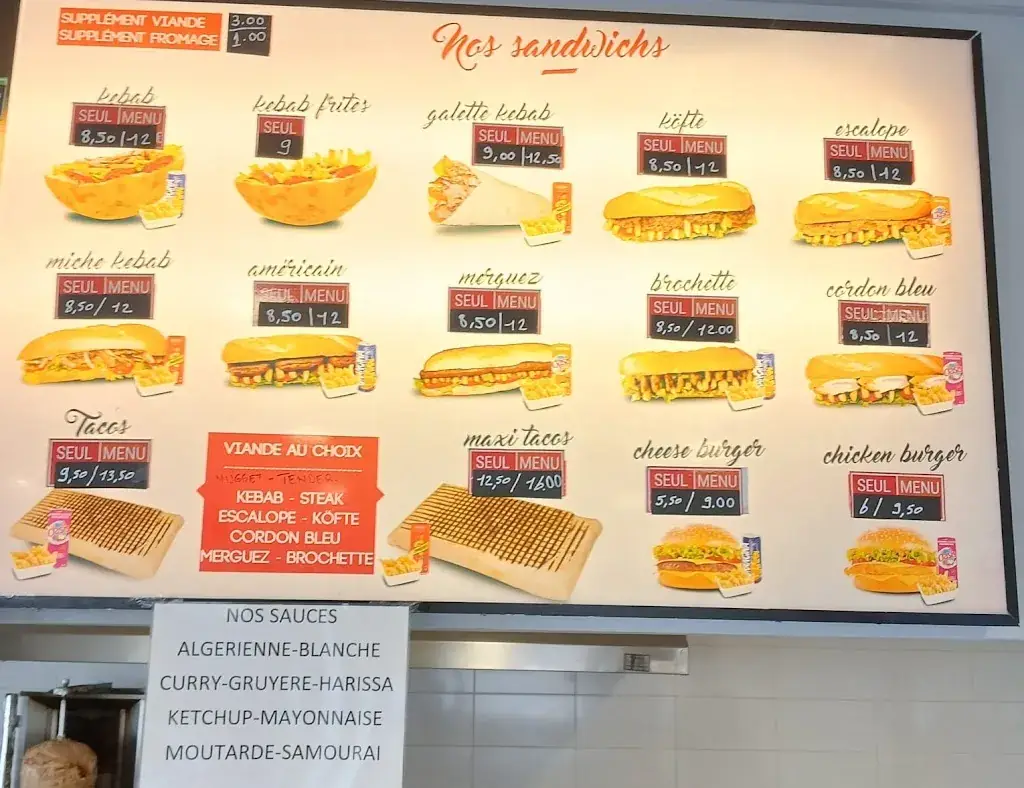 SUPPLÉMENT VIANDE 3.00
SUPPLÉMENT FROMAGE 1.00
Nos sandwichs
kebab
SEUL MENU
8,50 | 12
kebab frites
SEUL
9
galette kebab
SEUL MENU
9,00 | 12,50
köfte
SEUL MENU
8,50 | 12
escalope
SEUL MENU
8,50 | 12
miche kebab
SEUL MENU
8,50 / 12
américain
SEUL MENU
8,50 | 12
merguez
SEUL MENU
8,50 | 12
brochette
SEUL MENU
8,50 / 12.00
cordon bleu
SEUL MENU
8,50 | 12
Tacos
SEUL MENU
9,50 / 13,50
VIANDE AU CHOIX
NUGGET - TENDER
KEBAB - STEAK
ESCALOPE - KÖFTE
CORDON BLEU
MERGUEZ - BROCHETTE
maxi tacos
SEUL MENU
12,50 / 16.00
cheese burger
SEUL MENU
5,50 / 9.00
chicken burger
SEUL MENU
6 / 9,50
NOS SAUCES
ALGERIENNE-BLANCHE
CURRY-GRUYERE-HARISSA
KETCHUP-MAYONNAISE
MOUTARDE-SAMOURAI